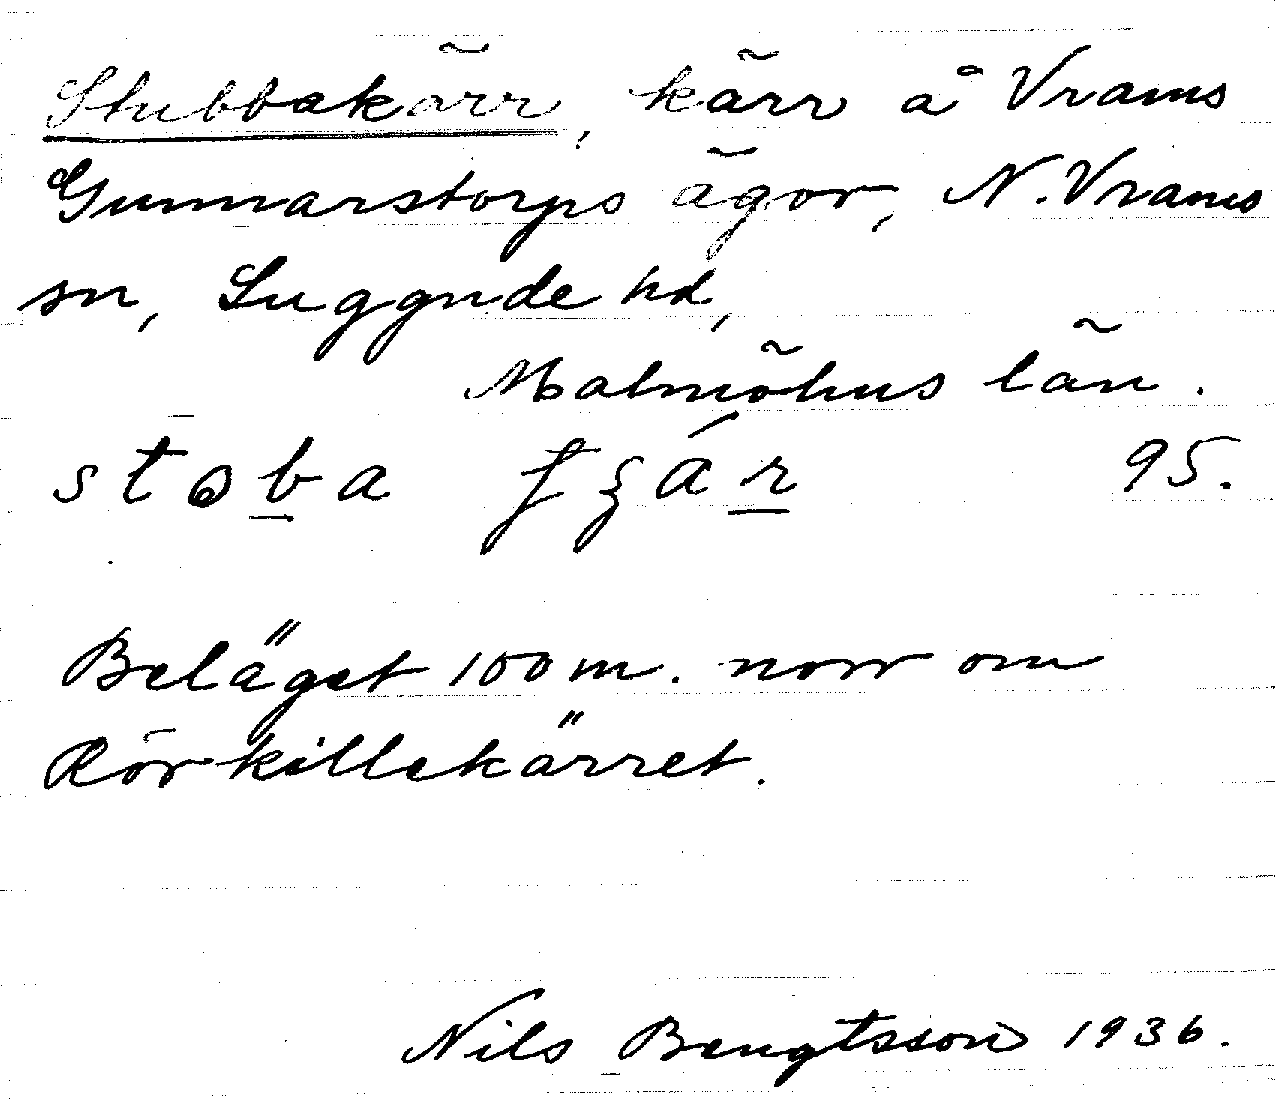 Stubbakärr, kärr å Vrams
Gunnarstorps ägor, N. Vrams
sn, Luggude hd,
Malmöhus län.
95.
Beläget 100 m. norr om
Rörkillekärret.
Nils Bengtsson 1936.